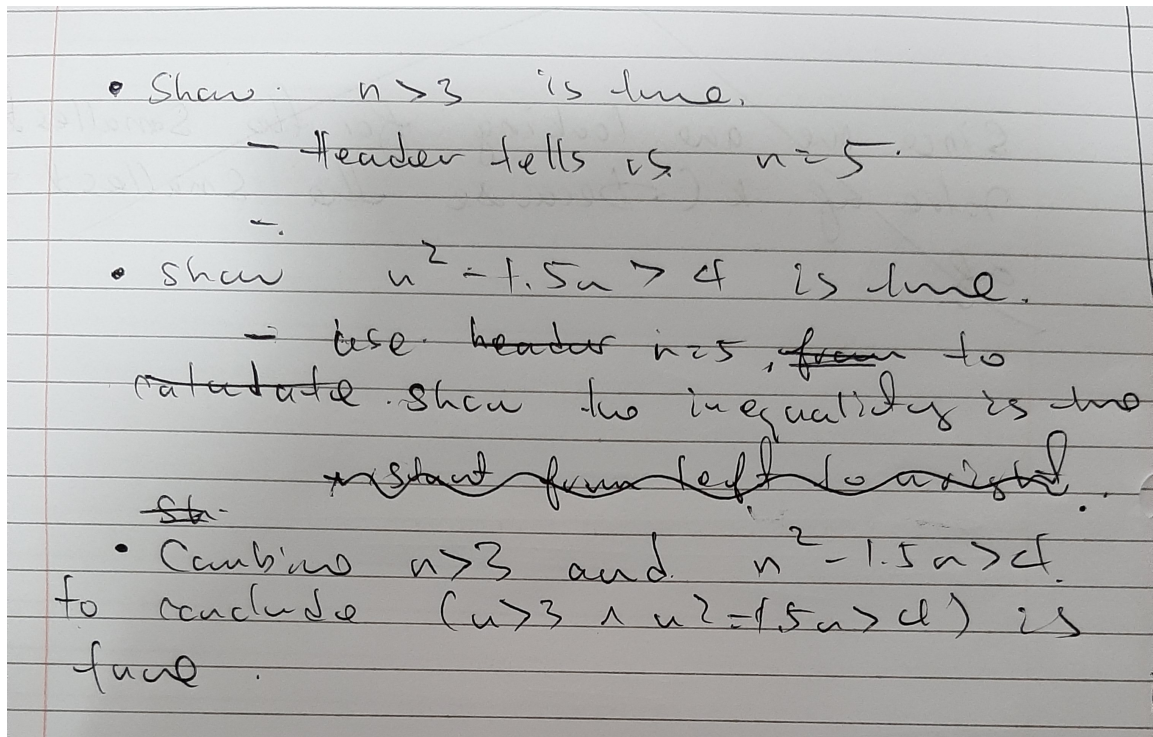 • Show n>3 is true.
- Header tells us n=5.
-.
• show n² - 1.5n > 4 is true.
- Use header n=5, from to
calculate show the inequality is true
start from left to right.
Sh
• Combine n>3 and n² - 1.5n > 4.
to conclude (n>3 ∧ n² - 1.5n > 4) is
true.